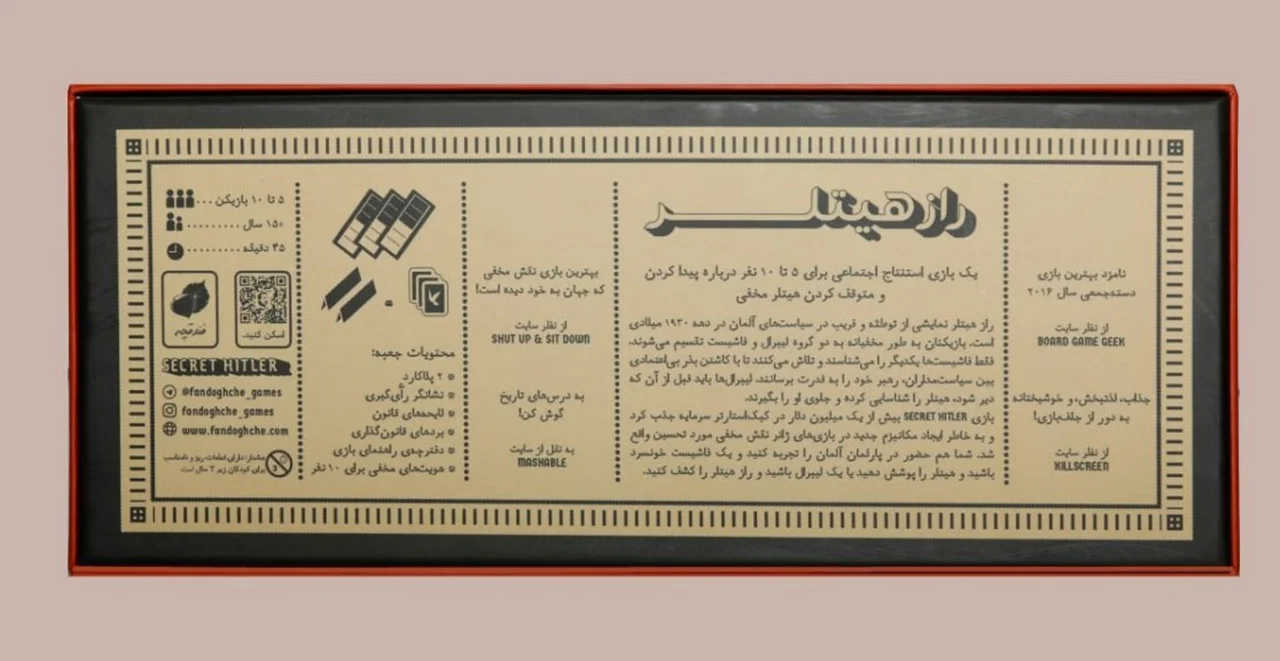 نامزد بهترین بازی
دسته‌جمعی سال ۲۰۱۶
از نظر سایت
BOARD GAME GEEK
جذاب، لذتبخش، و خوشبختانه
به دور از جلف‌بازی!
از نظر سایت
KILLSCREEN
راز هیتلر
یک بازی استنتاج اجتماعی برای ۵ تا ۱۰ نفر درباره پیدا کردن
و متوقف کردن هیتلر مخفی
راز هیتلر نمایشی از توطئه و فریب در سیاست‌های آلمان در دهه ۱۹۳۰ میلادی
است. بازیکنان به طور مخفیانه به دو گروه لیبرال و فاشیست تقسیم می‌شوند.
فقط فاشیست‌ها یکدیگر را می‌شناسند و تلاش می‌کنند تا با کاشتن بذر بی‌اعتمادی
بین سیاست‌مداران، رهبر خود را به قدرت برسانند. لیبرال‌ها باید قبل از آن که
دیر شود، هیتلر را شناسایی کرده و جلوی او را بگیرند.
بازی SECRET HITLER بیش از یک میلیون دلار در کیک‌استارتر سرمایه جذب کرد
و به خاطر ایجاد مکانیزم جدید در بازی‌های ژانر نقش مخفی مورد تحسین واقع
شد. شما هم حضور در پارلمان آلمان را تجربه کنید و یک فاشیست خونسرد
باشید و هیتلر را پوشش دهید یا یک لیبرال باشید و راز هیتلر را کشف کنید.
بهترین بازی نقش مخفی
که جهان به خود دیده است!
از نظر سایت
SHUT UP & SIT DOWN
به درس‌های تاریخ
گوش کن!
به نقل از سایت
MASHABLE
محتویات جعبه:
۲ پلاکارد
نشانگر رأی‌گیری
لایحه‌های قانون
بردهای قانون‌گذاری
دفترچه‌ی راهنمای بازی
هویت‌های مخفی برای ۱۰ نفر
۵ تا ۱۰ بازیکن
۱۵+ سال
۴۵ دقیقه
اسکن کنید.
فندقچه
SECRET HITLER
@fandoghche_games
fandoghche_games
www.fandoghche.com
هشدار: دارای قطعات ریز و نامناسب
برای کودکان زیر ۳ سال است